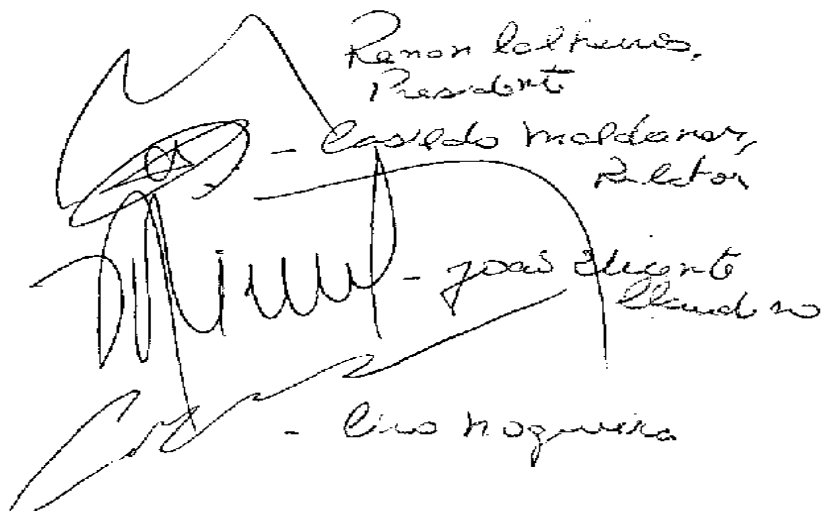 Renan Calheiros,
Presidente
- Casildo Maldaner,
Relator
- João Vicente
Claudino
- Ciro Nogueira